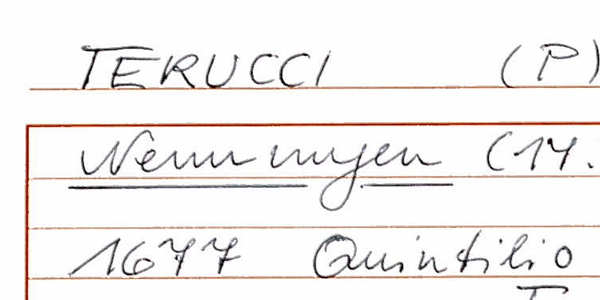 TERUCCI (P)
Nenningen (14.
1677 Quintilio